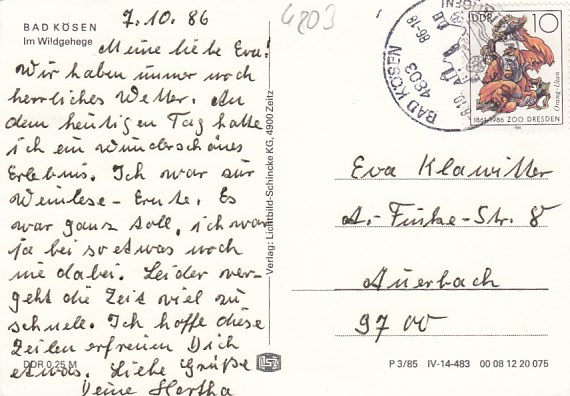 7.10.86
4803
BAD KÖSEN
Im Wildgehege
Meine liebe Eva!
Wir haben immer noch
herrliches Wetter. An
dem heutigen Tag hatte
ich ein wunderschönes
Erlebnis. Ich war zur
Weinlese-Ernte. Es
war ganz toll, ich war
ja bei so etwas noch
nie dabei. Leider ver-
geht die Zeit viel zu
schnell. Ich hoffe diese
Zeilen erfreuen Dich
etwas. Liebe Grüße
Deine Hertha
DDR 0,25 M
Verlag: Lichtbild-Schincke KG, 4900 Zeitz
BAD KÖSEN
4803
86-18
DDR 10
Orang-Utan
1861-1986 ZOO DRESDEN
Eva Klawitter
A.-Funke-Str. 8
Auerbach
9700
P 3/85 IV-14-483 00 08 12 20 075